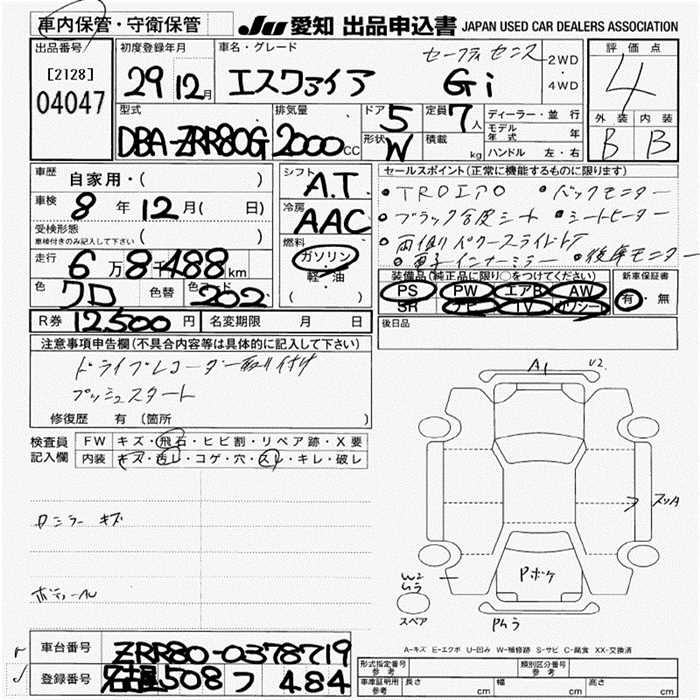 車内保管・守衛保管 JU 愛知 出品申込書 JAPAN USED CAR DEALERS ASSOCIATION
出品番号 初度登録年月 車名・グレード セーフティセンス 評価点
[2128] 29 12月 エスクァイア Gi 2WD・4WD 4
04047
型式 排気量 ドア 5 定員 7人 ディーラー・並行 外装 内装
DBA-ZRR80G 2000cc 形状 W 積載 kg モデル年式 年 B B
ハンドル 左・右
車歴 自家用・( ) シフト A.T. セールスポイント(正常に機能するものに限ります)
車検 8年 12月( 日) 冷房 AAC ・TRDエアロ ・バックモニター
受検形態 ( ) ・ブラック合皮シート ・シートヒーター
車検付きのみ記入して下さい 燃料 ガソリン・軽・油 ( ) ・両側パワースライドドア
走行 6万8千488km ・電子インナーミラー ・後席モニター
色 クロ 色替 色コード 202 装備品(純正品に限り○をつけてください) 新車保証書
PS PW エアB AW 有・無
SR ナビ TV カワシート
R券 12,500円 名変期限 月 日 後日品
注意事項申告欄(不具合内容等は具体的に記入して下さい)
ドライブレコーダー取り付け
プッシュスタート
修復歴 有(箇所 )
検査員 FW キズ・飛石・ヒビ割・リペア跡・X要
記入欄 内装 キズ・汚レ・コゲ・穴・スレ・キレ・破レ
A1 U2
スリA
ロ ミラー キズ
W2 ムラ
Pボケ
スペア Pムラ
A-キズ E-エクボ U-凹み W-補修跡 S-サビ C-腐食 XX-交換済
車台番号 ZRR80-0378719
登録番号 名古屋 508 フ 484
形式指定番号 参考 類別区分番号 参考
車庫証明用 参考 長さ cm 幅 cm 高さ cm